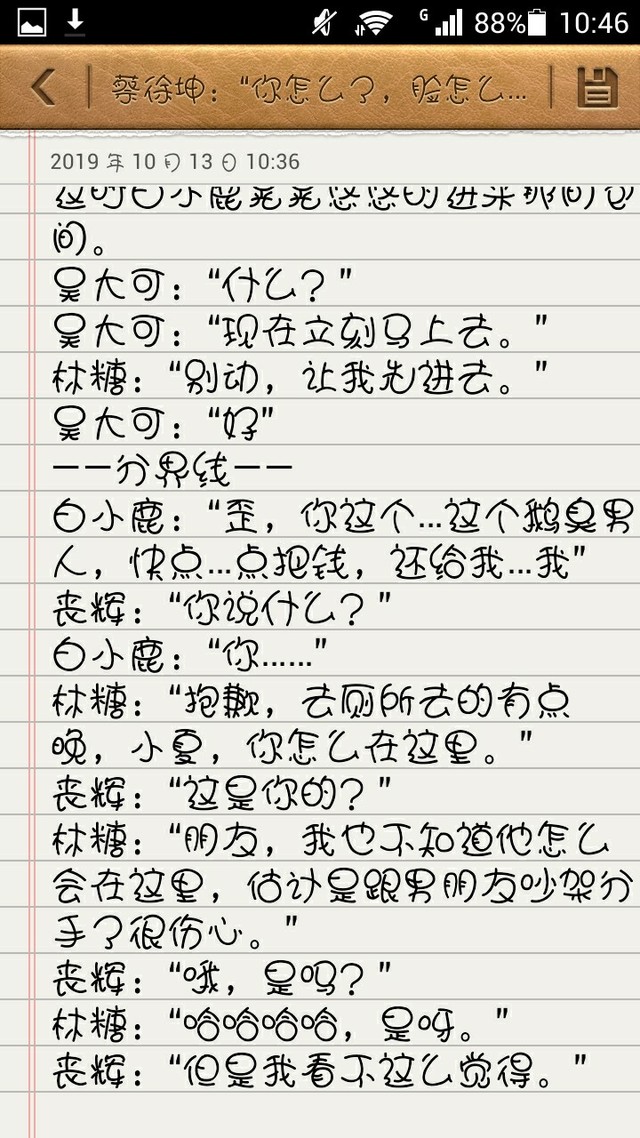 G 88% 10:46
蔡徐坤：“你怎么了，脸怎么...
2019 年 10 月 13 日 10:36
这时白小鹿晃晃悠悠的进来那间包
间。
吴大可：“什么？”
吴大可：“现在立刻马上去。”
林糖：“别动，让我先进去。”
吴大可：“好”
——分界线——
白小鹿：“歪，你这个...这个鹅臭男
人，快点...点把钱，还给我...我”
丧辉：“你说什么？”
白小鹿：“你......”
林糖：“抱歉，去厕所去的有点
晚，小夏，你怎么在这里。”
丧辉：“这是你的？”
林糖：“朋友，我也不知道他怎么
会在这里，估计是跟男朋友吵架分
手了很伤心。”
丧辉：“哦，是吗？”
林糖：“哈哈哈哈，是呀。”
丧辉：“但是我看不这么觉得。”